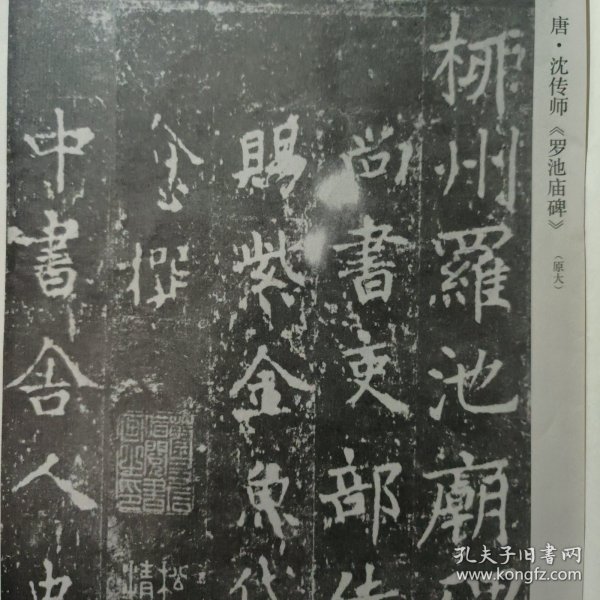 唐·沈传师《罗池庙碑》
(原大)
柳州羅池廟碑
尚書吏部侍
賜紫金魚袋
愈撰
中書舍人史
松
情
孔夫子旧书网
www.kongfz.com